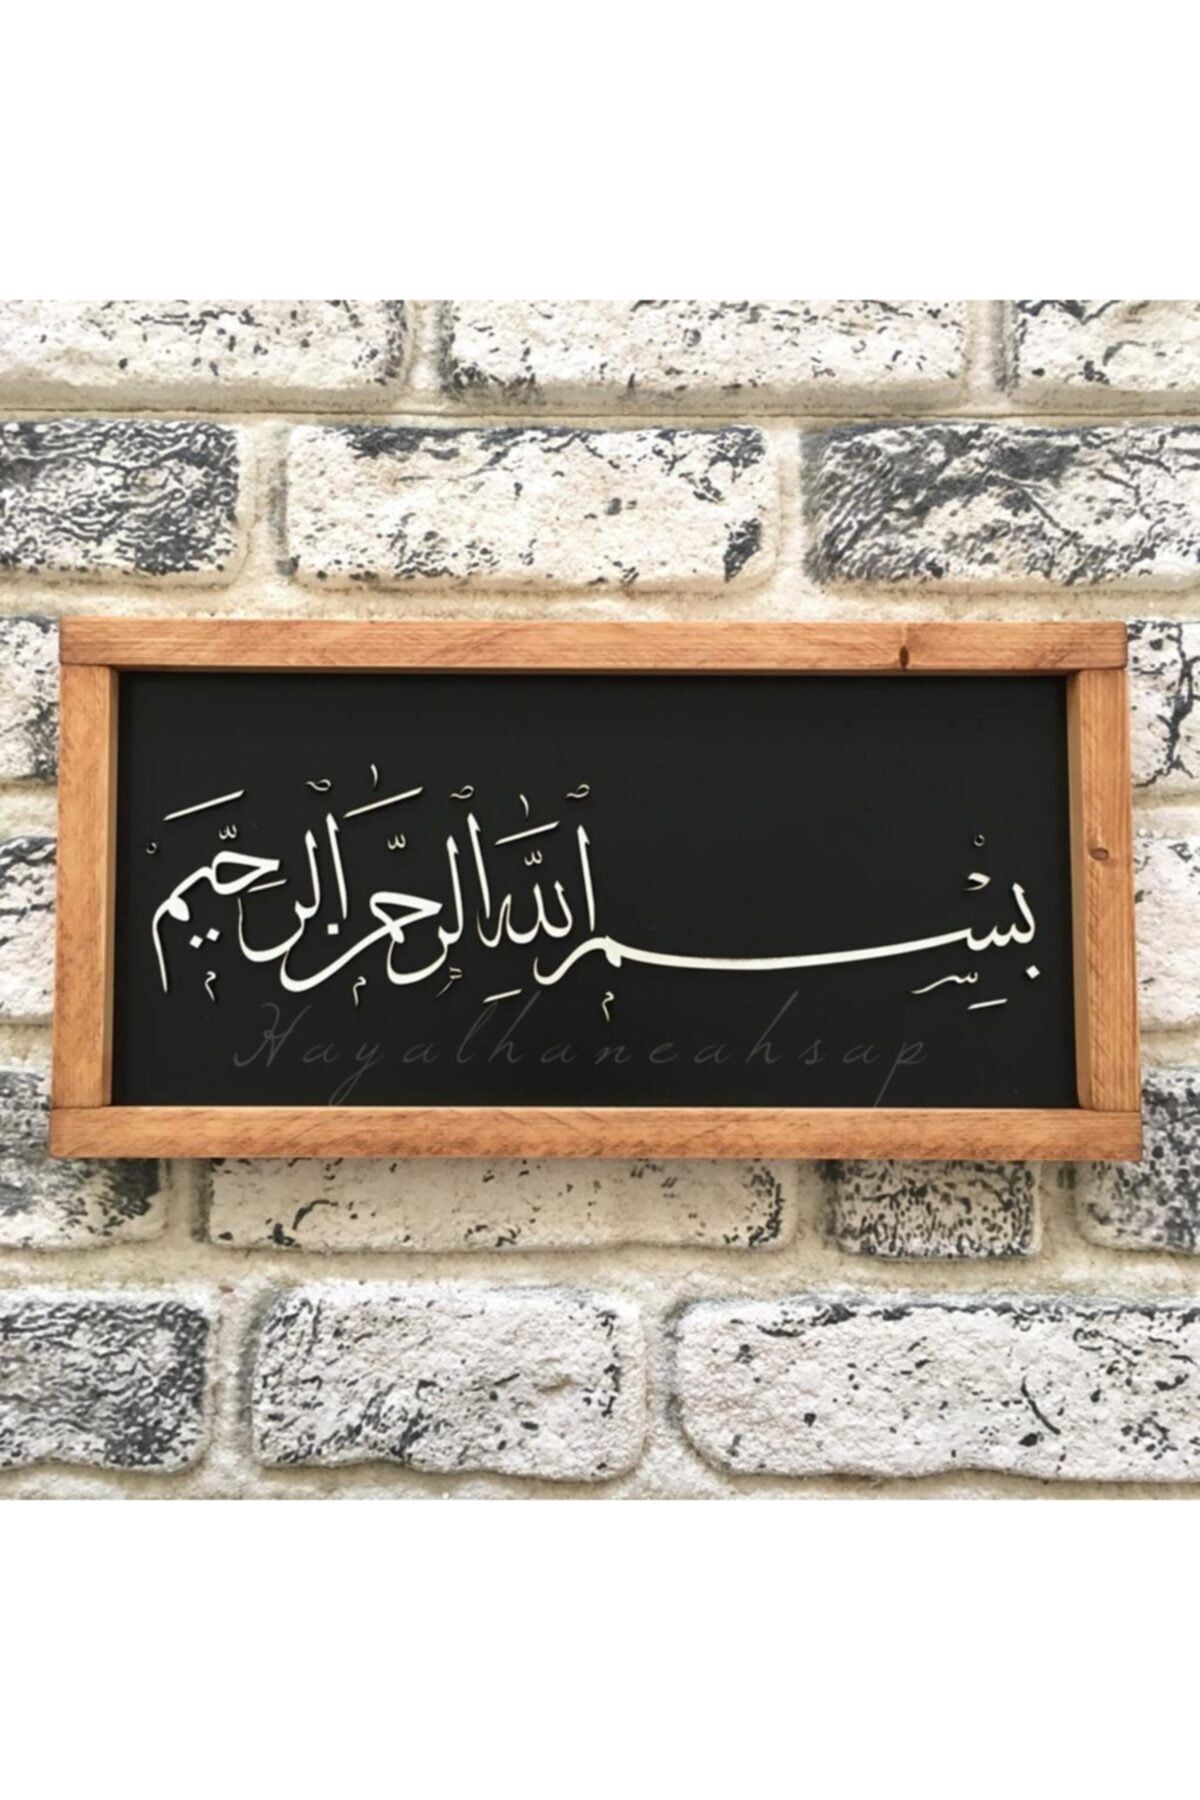 بِسْمِ اللّٰهِ الرَّحْمٰنِ الرَّحِيْمِ
Hayalhaneahsap